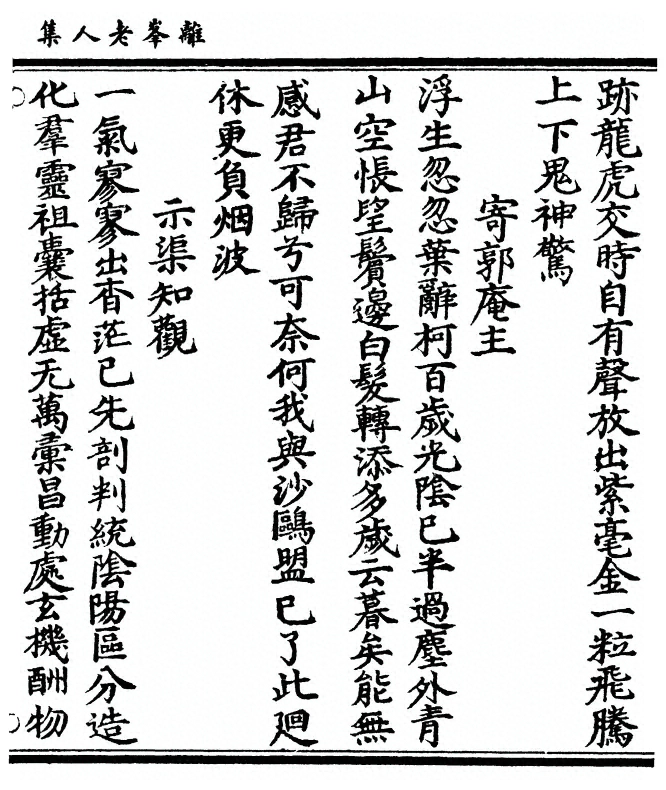 離峯老人集
跡龍虎交時自有聲放出紫毫金一粒飛騰
上下鬼神驚
寄郭庵主
浮生忽忽葉辭柯百歲光陰已半過塵外青
山空悵望鬢邊白髮轉添多歲云暮矣能無
感君不歸兮可奈何我與沙鷗盟已了此廻
休更負烟波
示渠知觀
一氣寥寥出杳茫已先剖判統陰陽區分造
化羣靈祖囊括虛无萬彙昌動處玄機酬物